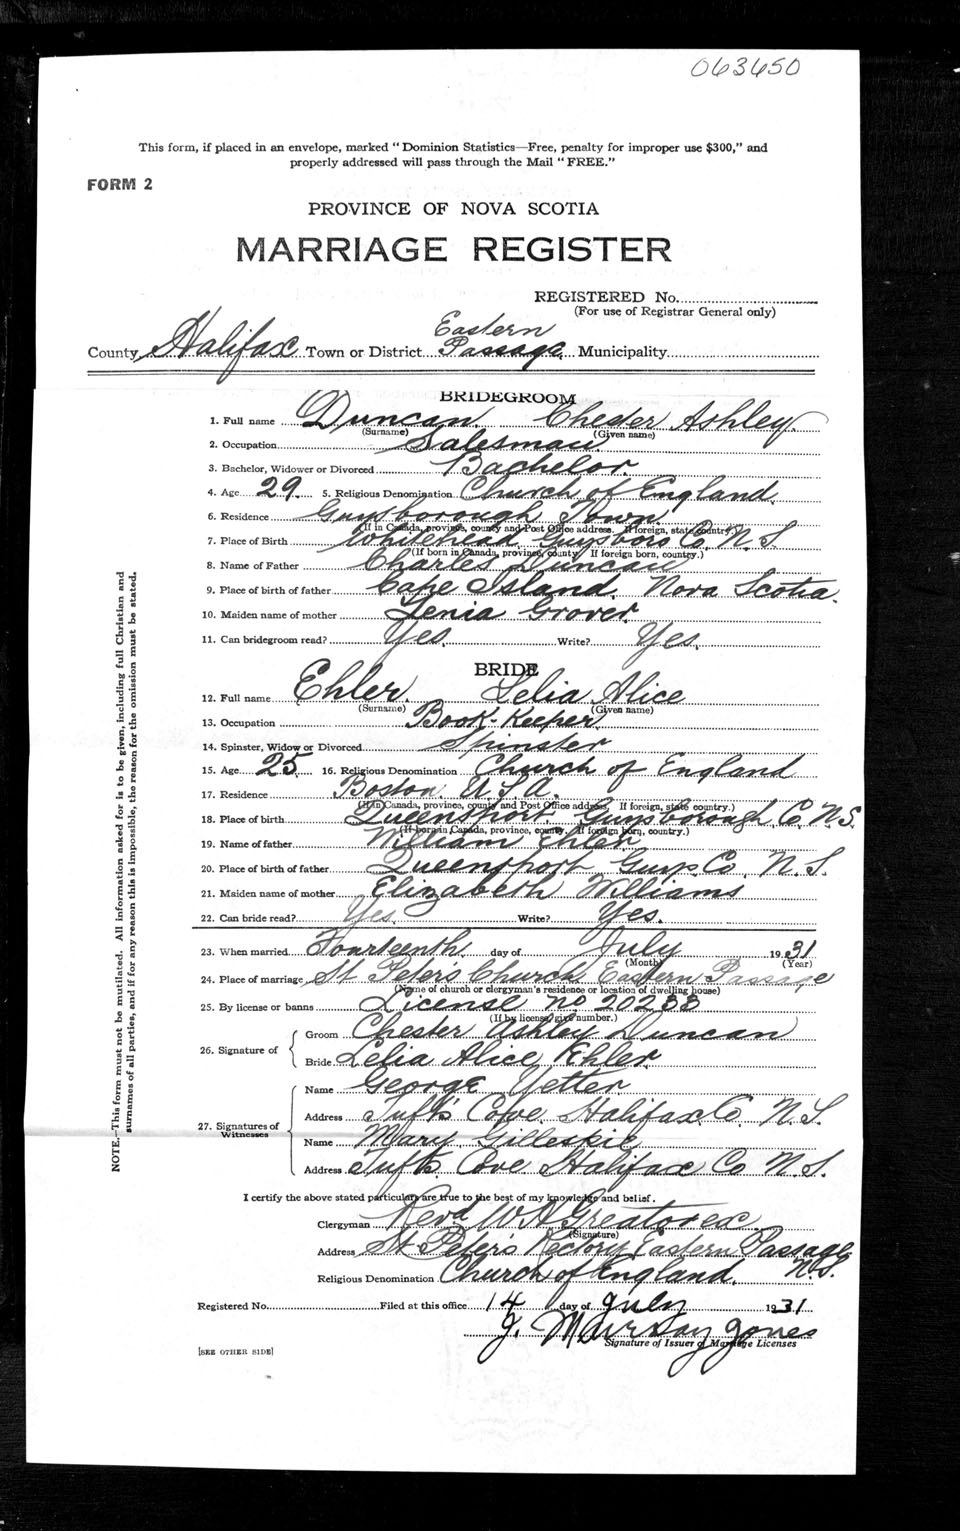 063650
This form, if placed in an envelope, marked " Dominion Statistics—Free, penalty for improper use $300," and
properly addressed will pass through the Mail " FREE."
FORM 2
PROVINCE OF NOVA SCOTIA
MARRIAGE REGISTER
REGISTERED No.
(For use of Registrar General only)
County Halifax Town or District Eastern Passage Municipality
BRIDEGROOM
1. Full name Duncan Chester Ashley
(Surname) (Given name)
2. Occupation Salesman
3. Bachelor, Widower or Divorced Bachelor.
4. Age 29. 5. Religious Denomination Church of England.
6. Residence Guysborough Town
(If in Canada, province, county and Post Office address. If foreign, state country.)
7. Place of Birth Whitehead Guysboro Co. N.S.
(If born in Canada, province, county If foreign born, country.)
8. Name of Father Charles Duncan
9. Place of birth of father Cape Island, Nova Scotia.
10. Maiden name of mother Lenia Grover.
11. Can bridegroom read? Yes. Write? Yes.
BRIDE
12. Full name Ehler. Lelia Alice
(Surname) (Given name)
13. Occupation Book-Keeper
14. Spinster, Widow or Divorced Spinster
15. Age 25 16. Religious Denomination Church of England
17. Residence Boston. U.S.A.
(If in Canada, province, county and Post Office address, If foreign, state country.)
18. Place of birth Queensport, Guysborough Co. N.S.
(If born in Canada, province, county. If foreign born, country.)
19. Name of father William Ehler
20. Place of birth of father Queensport Guys Co. N.S.
21. Maiden name of mother Elizabeth Williams
22. Can bride read? Yes Write? Yes.
23. When married Fourteenth day of July 1931
(Month) (Year)
24. Place of marriage St Peter's Church Eastern Passage
(Name of church or clergyman's residence or location of dwelling house)
25. By license or banns License no 20233
(If by license, give number.)
26. Signature of Groom Chester Ashley Duncan
Bride Lelia Alice Ehler.
27. Signatures of Witnesses Name George Yetter
Address Tufts Cove, Halifax Co N.S.
Name Mary Gillespie
Address Tufts Cove Halifax Co N.S.
I certify the above stated particulars are true to the best of my knowledge and belief.
Clergyman Revd W A Greatorex
(Signature)
Address St Peter's Rectory Eastern Passage
N.S.
Religious Denomination Church of England.
Registered No. Filed at this office 14 day of July 1931
J. Murray Jones
Signature of Issuer of Marriage Licenses
[SEE OTHER SIDE]
NOTE.—This form must not be mutilated. All information asked for is to be given, including full Christian and
surnames of all parties, and if for any reason this is impossible, the reason for the omission must be stated.